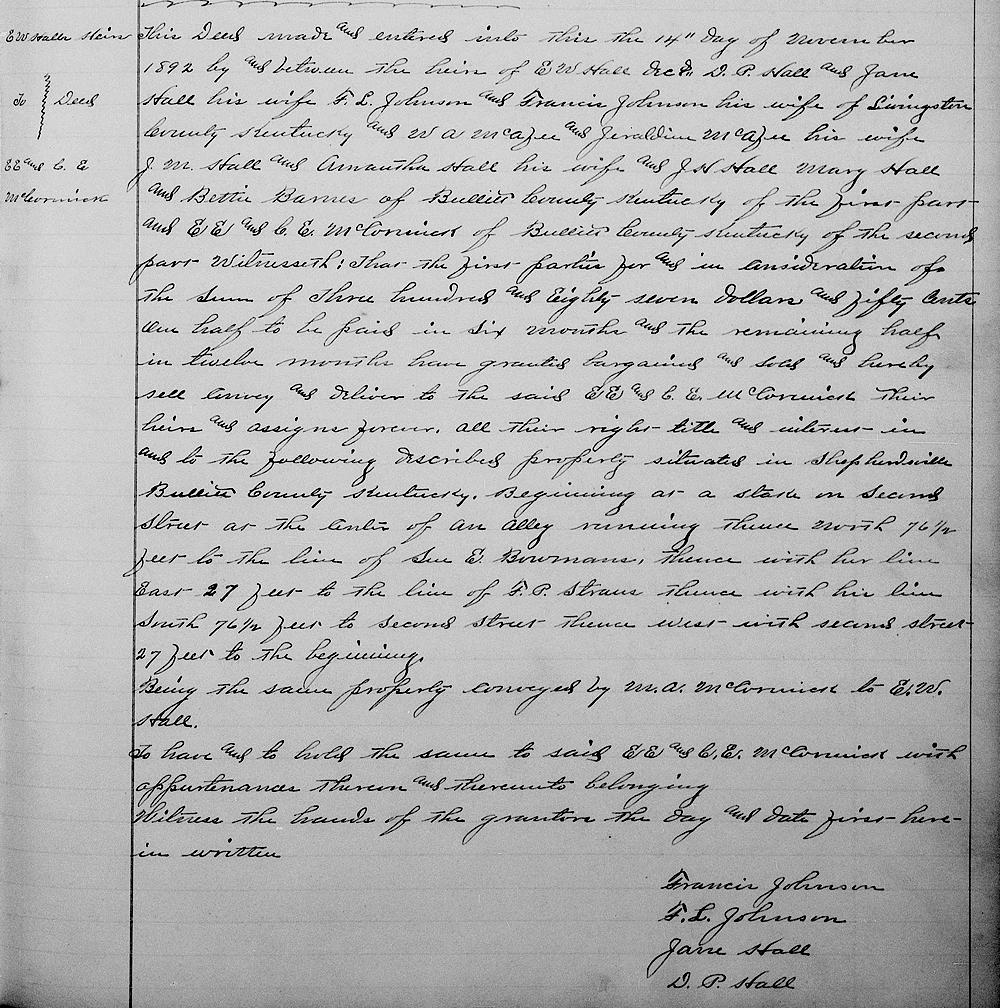 E W Halls Heirs
To Deed
E E and C. E
McCormick
This Deed made and entered into this the 14" day of November
1892 by and between the heirs of E W Hall decd, D. P. Hall and Jane
Hall his wife F. L. Johnson and Francis Johnson his wife of Livingston
County Kentucky and W A McAfee and Jeraldine McAfee his wife
J. M. Hall and Amantha Hall his wife and J. H Hall Mary Hall
and Bettie Barnes of Bullitt County Kentucky of the first part
and E E and C. E. McCormick of Bullitt County Kentucky of the second
part Witnesseth: That the first parties for and in consideration of
the sum of Three hundred and Eighty seven dollars and fifty cents
one half to be paid in six months and the remaining half
in twelve months have granted bargained and sold and hereby
sell convey and deliver to the said E E and C. E. McCormick their
heirs and assigns forever, all their right title and interest in
and to the following described property situated in Shepherdsville
Bullitt County Kentucky. Beginning at a stake on Second
street at the center of an alley running thence North 76 1/2
feet to the line of Sue E. Bowmans, thence with her line
East 27 feet to the line of F. P. Straus thence with his line
South 76 1/2 feet to second street thence west with second street
27 feet to the beginning.
Being the same property conveyed by M. A. McCormick to E. W.
Hall.
To have and to hold the same to said E E and C. E. McCormick with
appurtenances therein and thereunto belonging
Witness the hands of the grantors the day and date first here-
in written
Francis Johnson
F. L. Johnson
Jane Hall
D. P. Hall